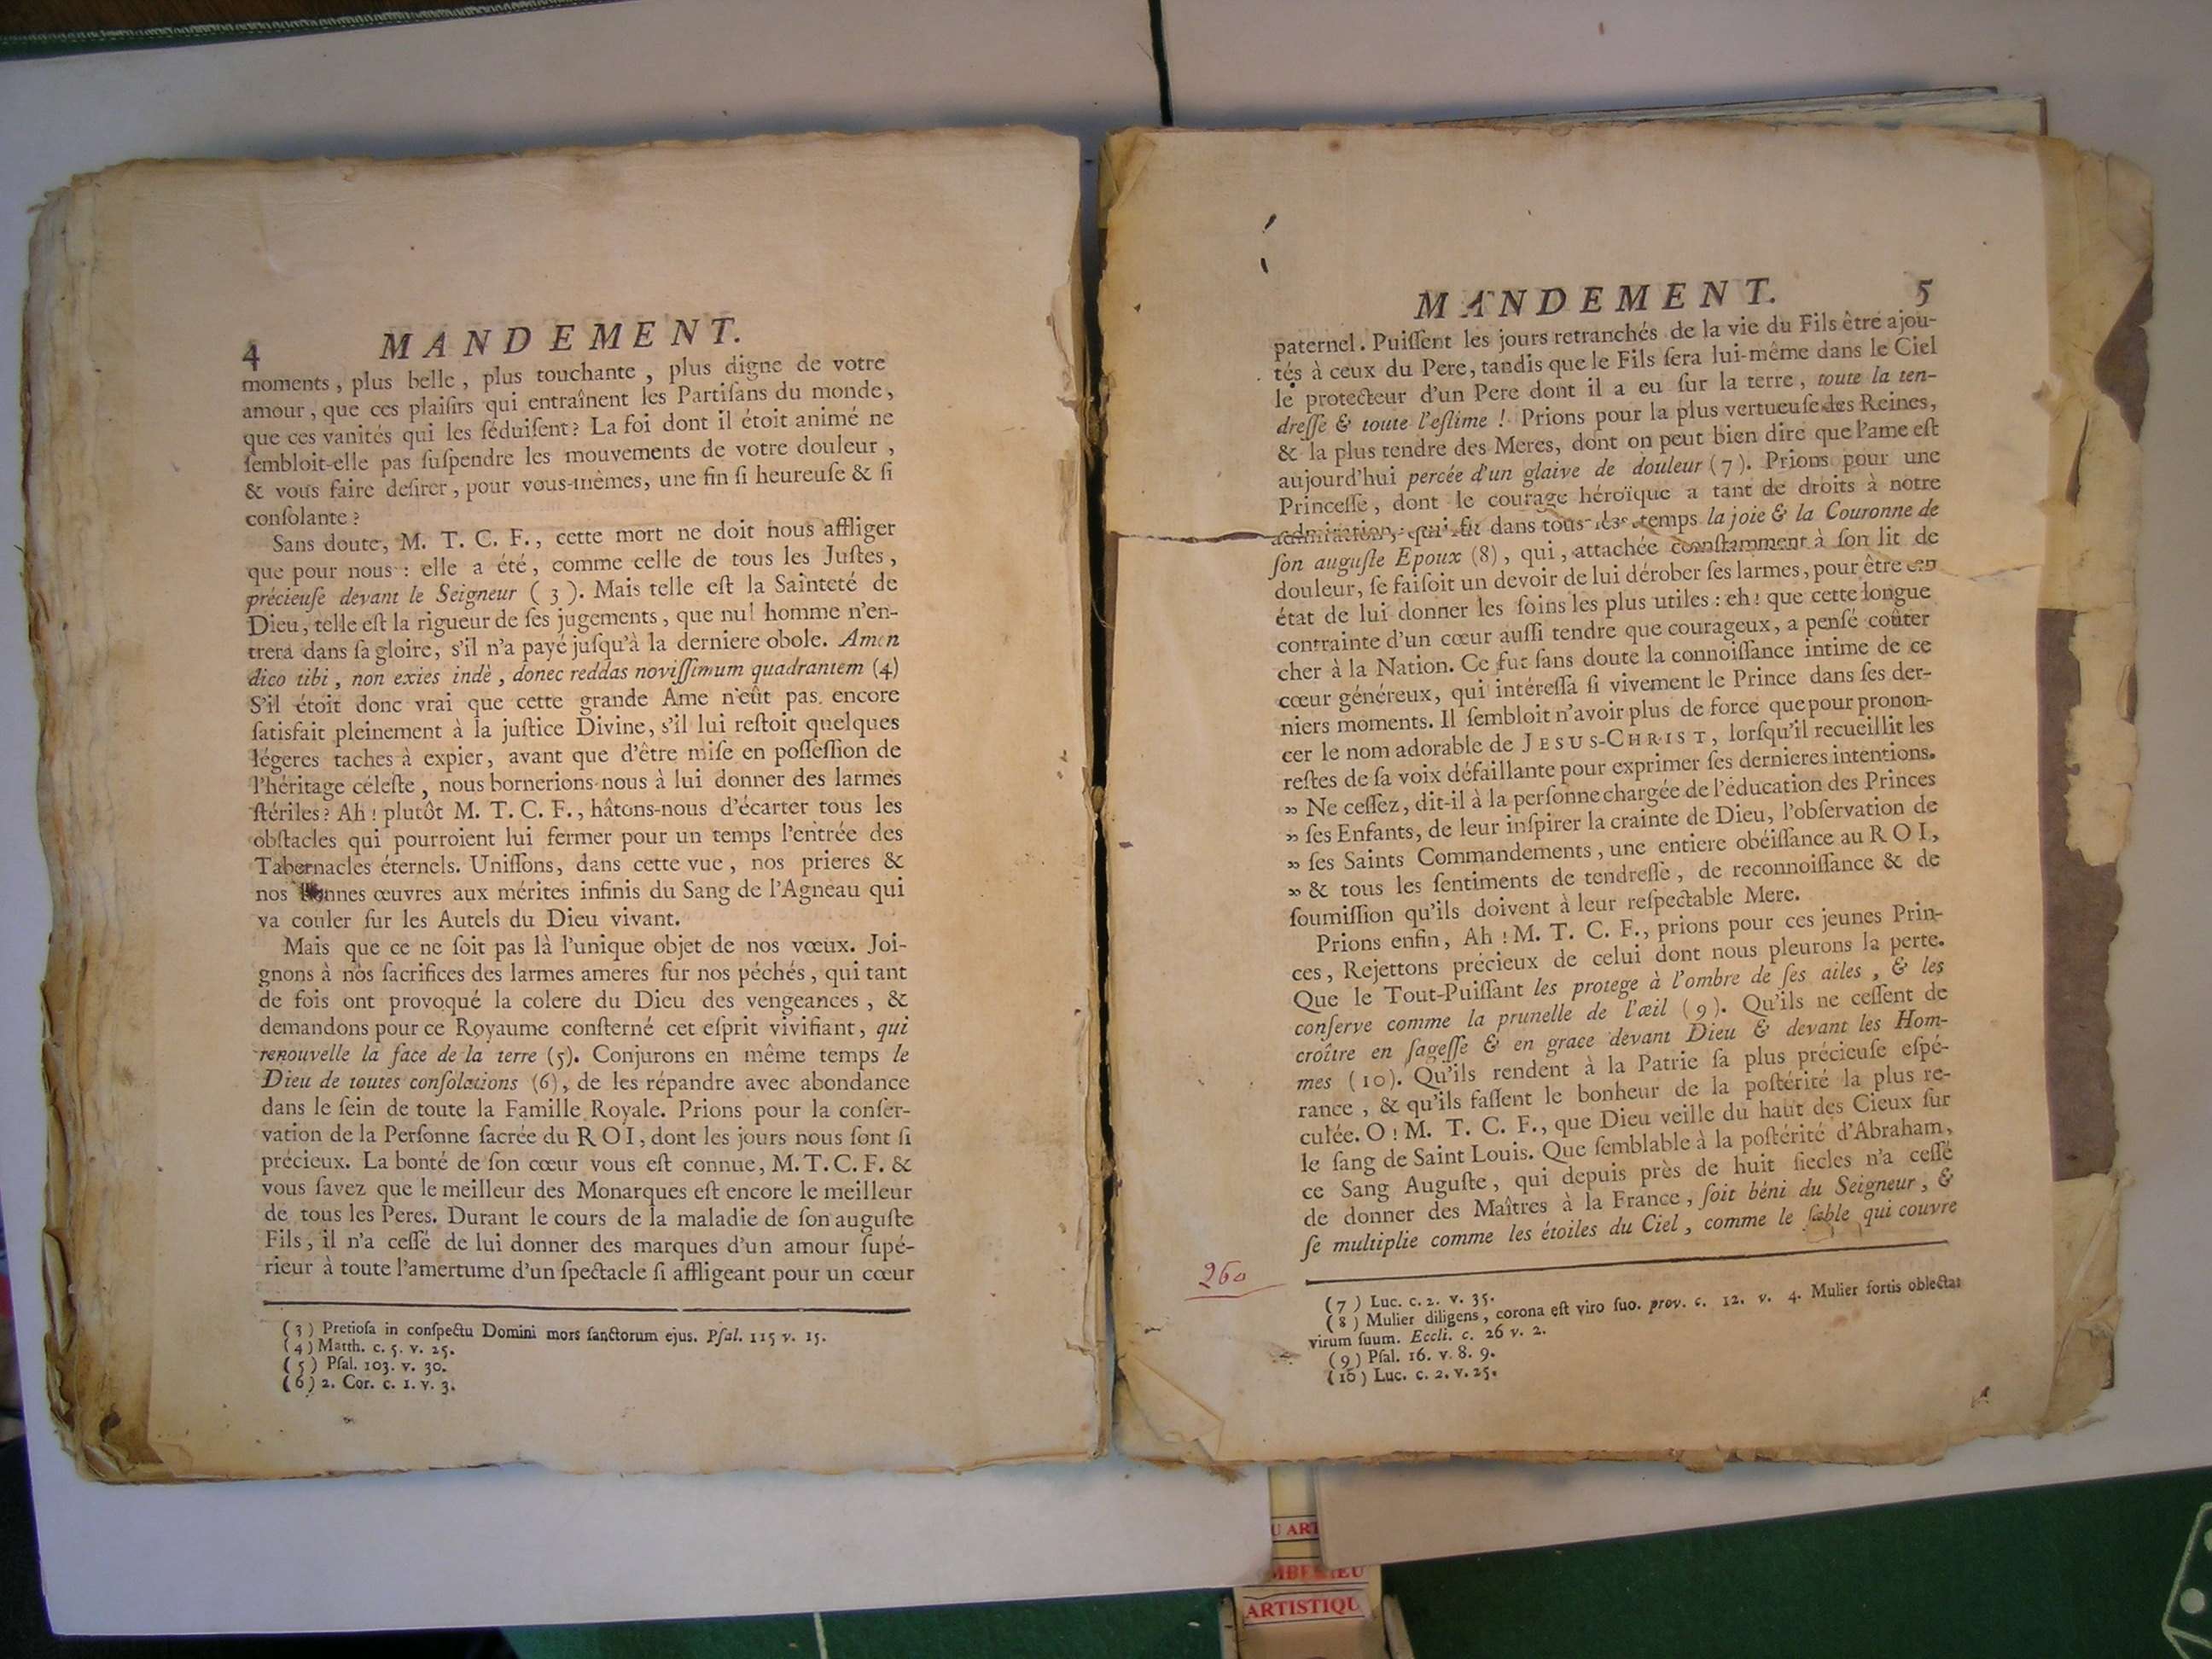 4 MANDEMENT.
moments, plus belle, plus touchante, plus digne de votre
amour, que ces plaiſirs qui entraînent les Partiſans du monde,
que ces vanités qui les ſéduiſent? La foi dont il étoit animé ne
ſembloit-elle pas ſuſpendre les mouvements de votre douleur,
& vous faire deſirer, pour vous-mêmes, une fin ſi heureuſe & ſi
conſolante?
Sans doute, M. T. C. F., cette mort ne doit nous affliger
que pour nous: elle a été, comme celle de tous les Juſtes,
précieuſe devant le Seigneur (3). Mais telle eſt la Sainteté de
Dieu, telle eſt la rigueur de ſes jugements, que nul homme n'en-
trera dans ſa gloire, s'il n'a payé juſqu'à la derniere obole. Amen
dico tibi, non exies indè, donec reddas noviſſimum quadrantem (4)
S'il étoit donc vrai que cette grande Ame n'eût pas encore
ſatisfait pleinement à la juſtice Divine, s'il lui reſtoit quelques
légeres taches à expier, avant que d'être miſe en poſſeſſion de
l'héritage céleſte, nous bornerions-nous à lui donner des larmes
ſtériles? Ah! plutôt M. T. C. F., hâtons-nous d'écarter tous les
obſtacles qui pourroient lui fermer pour un temps l'entrée des
Tabernacles éternels. Uniſſons, dans cette vue, nos prieres &
nos bonnes œuvres aux mérites infinis du Sang de l'Agneau qui
va couler ſur les Autels du Dieu vivant.
Mais que ce ne ſoit pas là l'unique objet de nos vœux. Joi-
gnons à nos ſacrifices des larmes ameres ſur nos péchés, qui tant
de fois ont provoqué la colere du Dieu des vengeances, &
demandons pour ce Royaume conſterné cet eſprit vivifiant, qui
renouvelle la face de la terre (5). Conjurons en même temps le
Dieu de toutes conſolations (6), de les répandre avec abondance
dans le ſein de toute la Famille Royale. Prions pour la conſer-
vation de la Perſonne ſacrée du ROI, dont les jours nous ſont ſi
précieux. La bonté de ſon cœur vous eſt connue, M. T. C. F. &
vous ſavez que le meilleur des Monarques eſt encore le meilleur
de tous les Peres. Durant le cours de la maladie de ſon auguſte
Fils, il n'a ceſſé de lui donner des marques d'un amour ſupé-
rieur à toute l'amertume d'un ſpectacle ſi affligeant pour un cœur
(3) Pretioſa in conſpectu Domini mors ſanctorum ejus. Pſal. 115 v. 15.
(4) Matth. c. 5. v. 25.
(5) Pſal. 103. v. 30.
(6) 2. Cor. c. 1. v. 3.
MANDEMENT. 5
paternel. Puiſſent les jours retranchés de la vie du Fils être ajou-
tés à ceux du Pere, tandis que le Fils ſera lui-même dans le Ciel
le protecteur d'un Pere dont il a eu ſur la terre, toute la ten-
dreſſe & toute l'eſtime! Prions pour la plus vertueuſe des Reines,
& la plus tendre des Meres, dont on peut bien dire que l'ame eſt
aujourd'hui percée d'un glaive de douleur (7). Prions pour une
Princeſſe, dont le courage héroïque a tant de droits à notre
admiration, qui fut dans tous les temps la joie & la Couronne de
ſon auguſte Epoux (8), qui, attachée conſtamment à ſon lit de
douleur, ſe faiſoit un devoir de lui dérober ſes larmes, pour être en
état de lui donner les ſoins les plus utiles: eh! que cette longue
contrainte d'un cœur auſſi tendre que courageux, a penſé coûter
cher à la Nation. Ce fut ſans doute la connoiſſance intime de ce
cœur généreux, qui intéreſſa ſi vivement le Prince dans ſes der-
niers moments. Il ſembloit n'avoir plus de force que pour pronon-
cer le nom adorable de JESUS-CHRIST, lorſqu'il recueillit les
reſtes de ſa voix défaillante pour exprimer ſes dernieres intentions.
» Ne ceſſez, dit-il à la perſonne chargée de l'éducation des Princes
» ſes Enfants, de leur inſpirer la crainte de Dieu, l'obſervation de
» ſes Saints Commandements, une entiere obéiſſance au ROI,
» & tous les ſentiments de tendreſſe, de reconnoiſſance & de
ſoumiſſion qu'ils doivent à leur reſpectable Mere.
Prions enfin, Ah! M. T. C. F., prions pour ces jeunes Prin-
ces, Rejettons précieux de celui dont nous pleurons la perte.
Que le Tout-Puiſſant les protege à l'ombre de ſes ailes, & les
conſerve comme la prunelle de l'œil (9). Qu'ils ne ceſſent de
croître en ſageſſe & en grace devant Dieu & devant les Hom-
mes (10). Qu'ils rendent à la Patrie ſa plus précieuſe eſpé-
rance, & qu'ils faſſent le bonheur de la poſtérité la plus re-
culée. O! M. T. C. F., que Dieu veille du haut des Cieux ſur
le ſang de Saint Louis. Que ſemblable à la poſtérité d'Abraham,
ce Sang Auguſte, qui depuis près de huit ſiecles n'a ceſſé
de donner des Maîtres à la France, ſoit béni du Seigneur, &
ſe multiplie comme les étoiles du Ciel, comme le ſable qui couvre
260
(7) Luc. c. 2. v. 35.
(8) Mulier diligens, corona eſt viro ſuo. prov. c. 12. v. 4. Mulier fortis oblectat
virum ſuum. Eccli. c. 26 v. 2.
(9) Pſal. 16. v. 8. 9.
(10) Luc. c. 2. v. 25.
U ART
ARTISTIQU